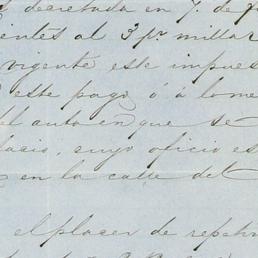 decretada en 7. de
entes al 3 pr. millar
vigente este impues
este pago ó á lo me
el auto en que se
lacio, cuyo oficio es
en la calle del
el placer de repetir